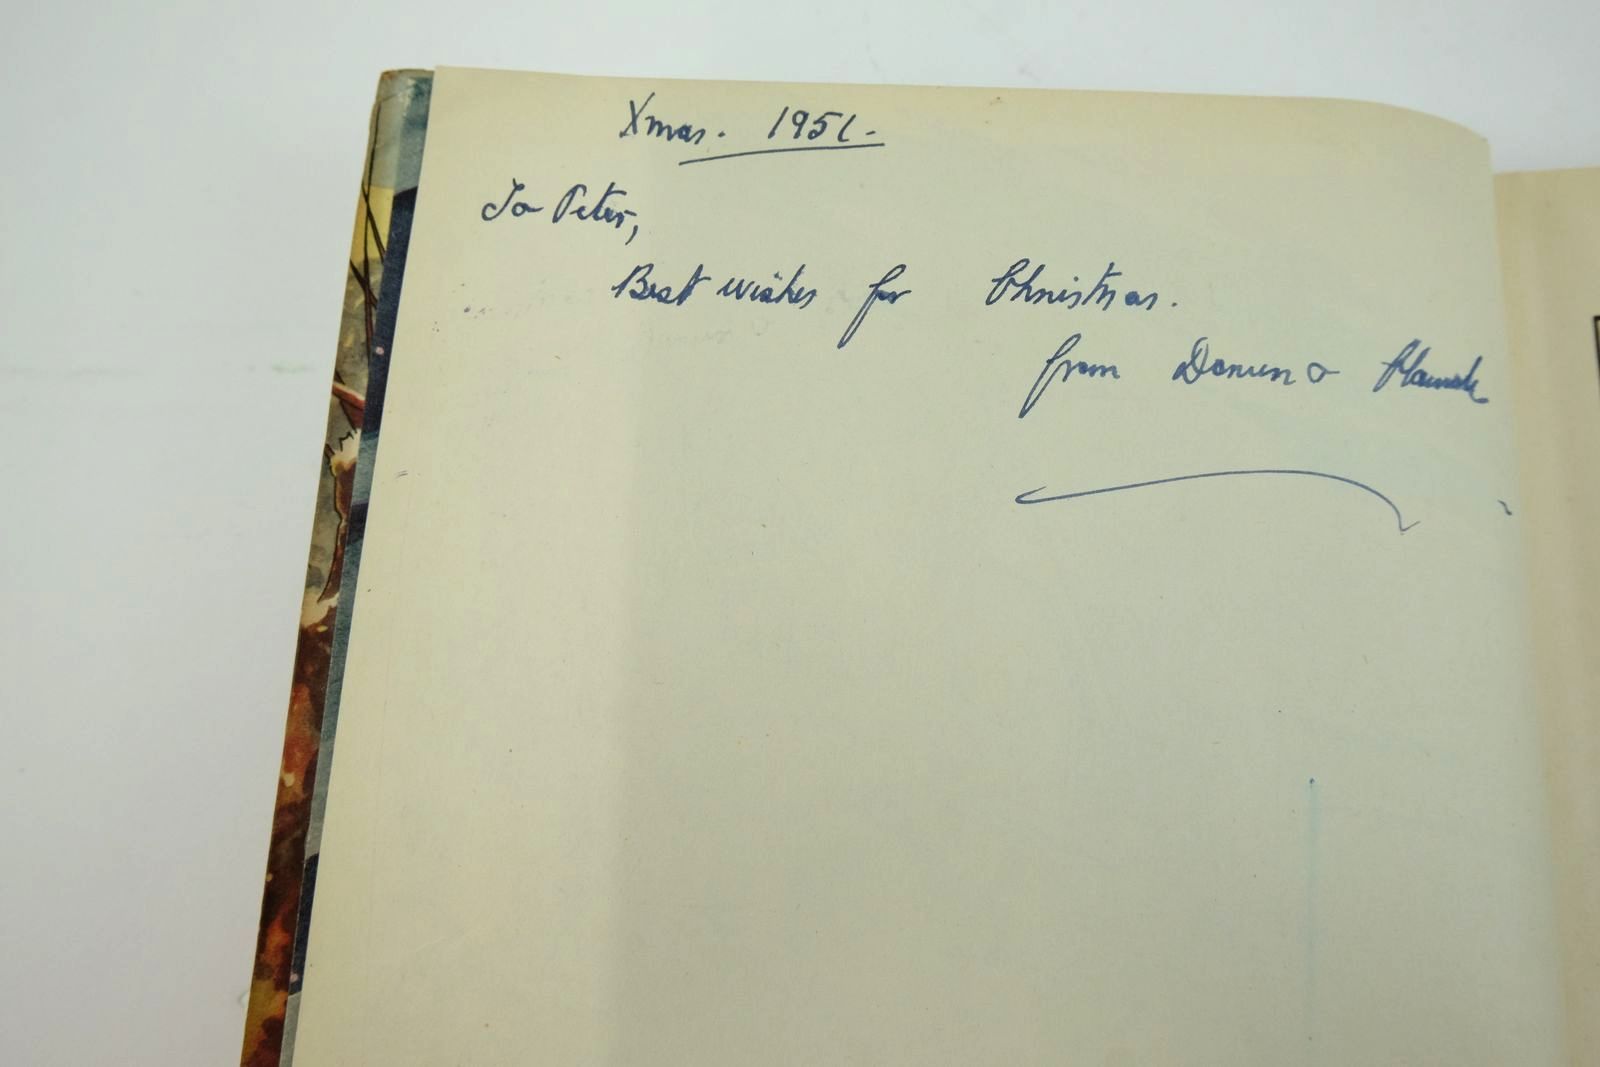 Xmas. 1951.
To Peter,
Best wishes for Christmas.
from &